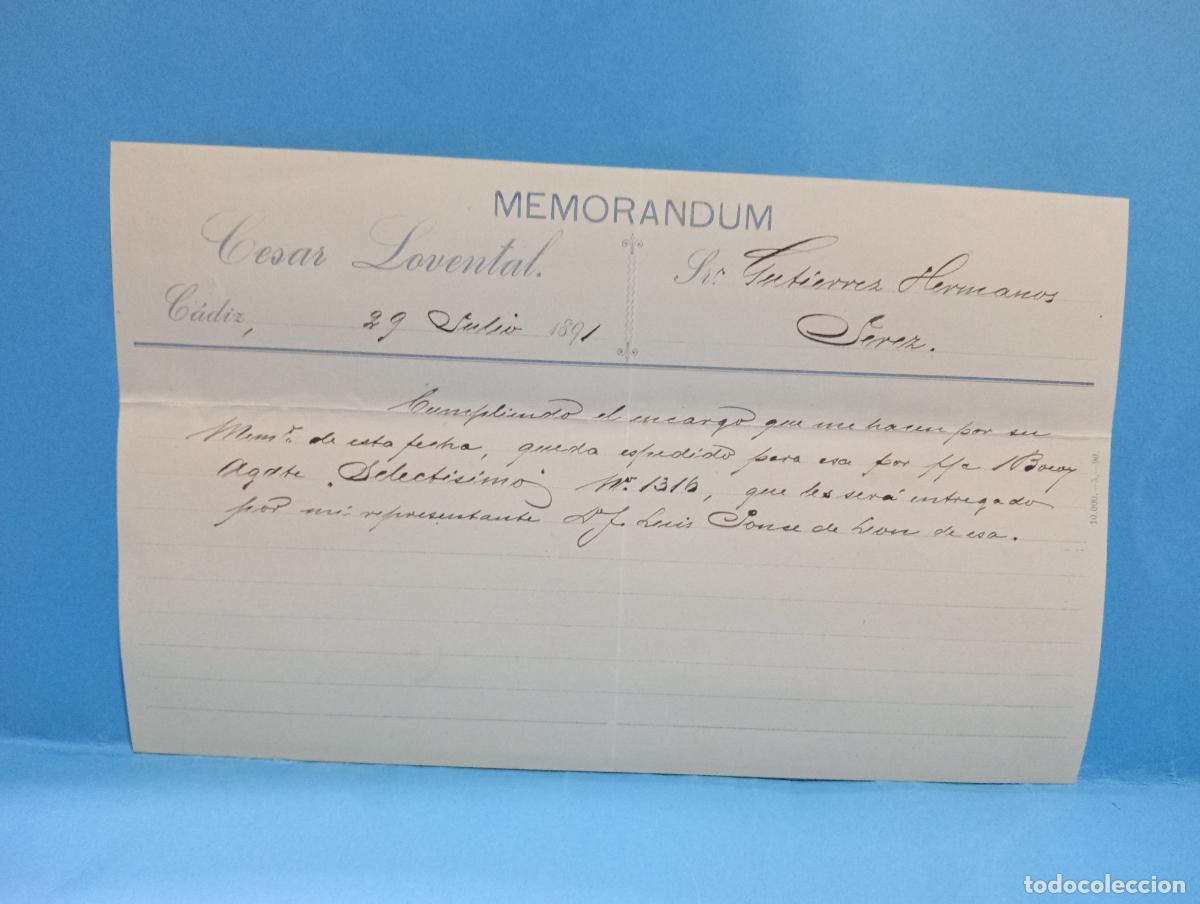 MEMORANDUM
Cesar Lovental.
Sr. Gutierrez Hermanos
Cádiz, 29 Julio 1891
Jerez.
Cumpliendo el encargo que me hacen por su
Mem.m de esta fecha, queda espedido para esa por f/c 1 Bocoy
Agdte Selectisimo Nº 1316, que les será entregado
por mi representante D. J. Luis Ponse de Leon de esa.
10.000.—3.—90.
todocoleccion